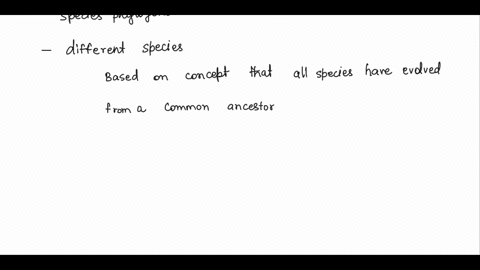 species
– different species
Based on concept that all species have evolved
from a common ancestor